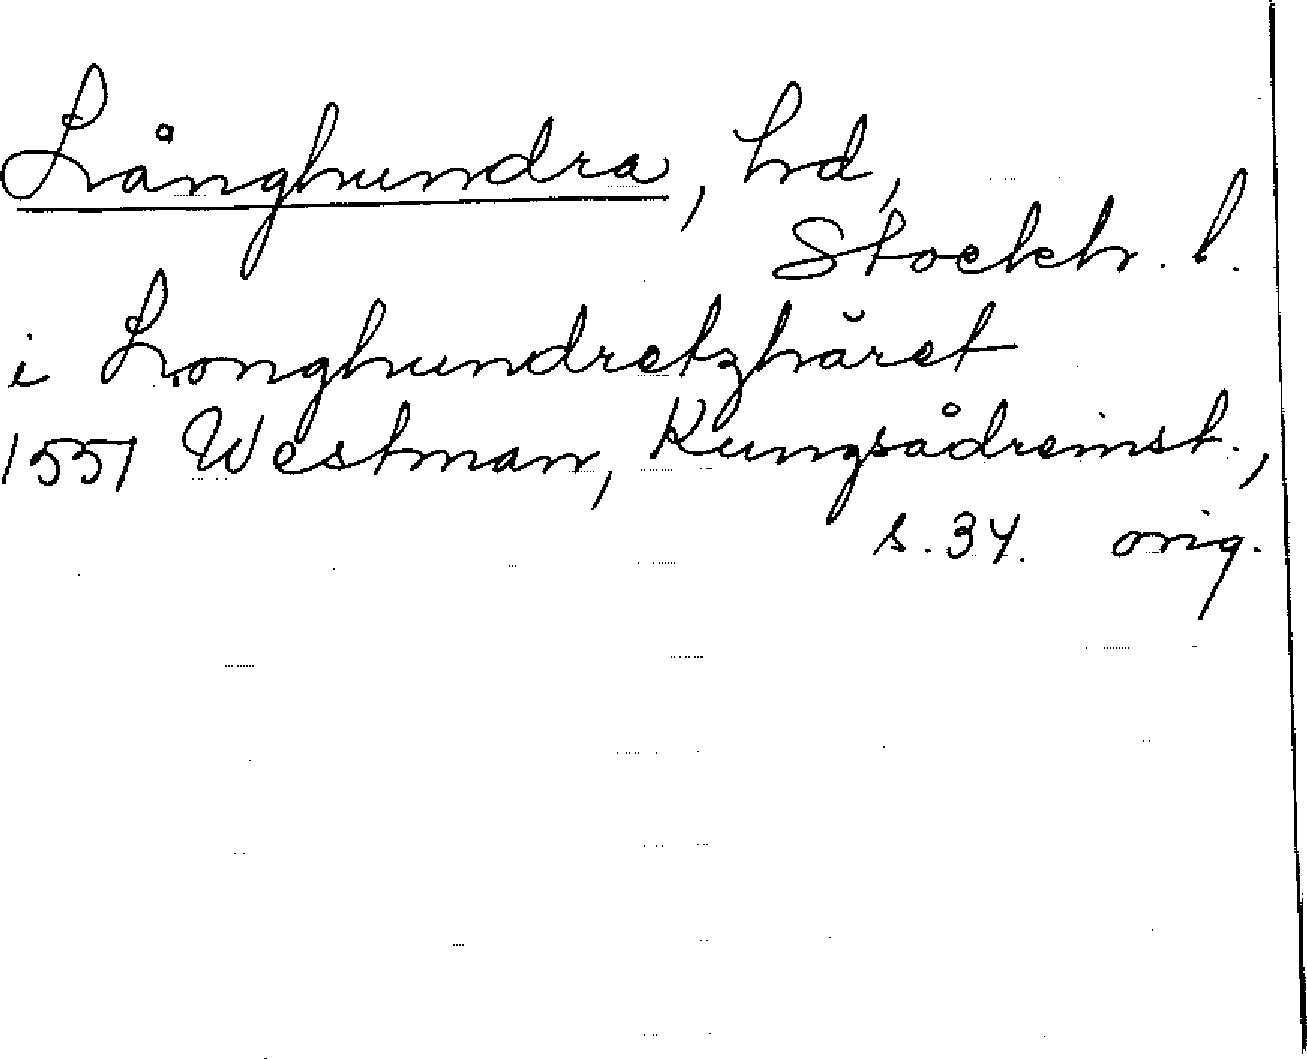 Långhundra, hd,
Stockh. l.
i Longhundretzhäret
1551 Westman, Kungsådreinst.,
s. 34. orig.